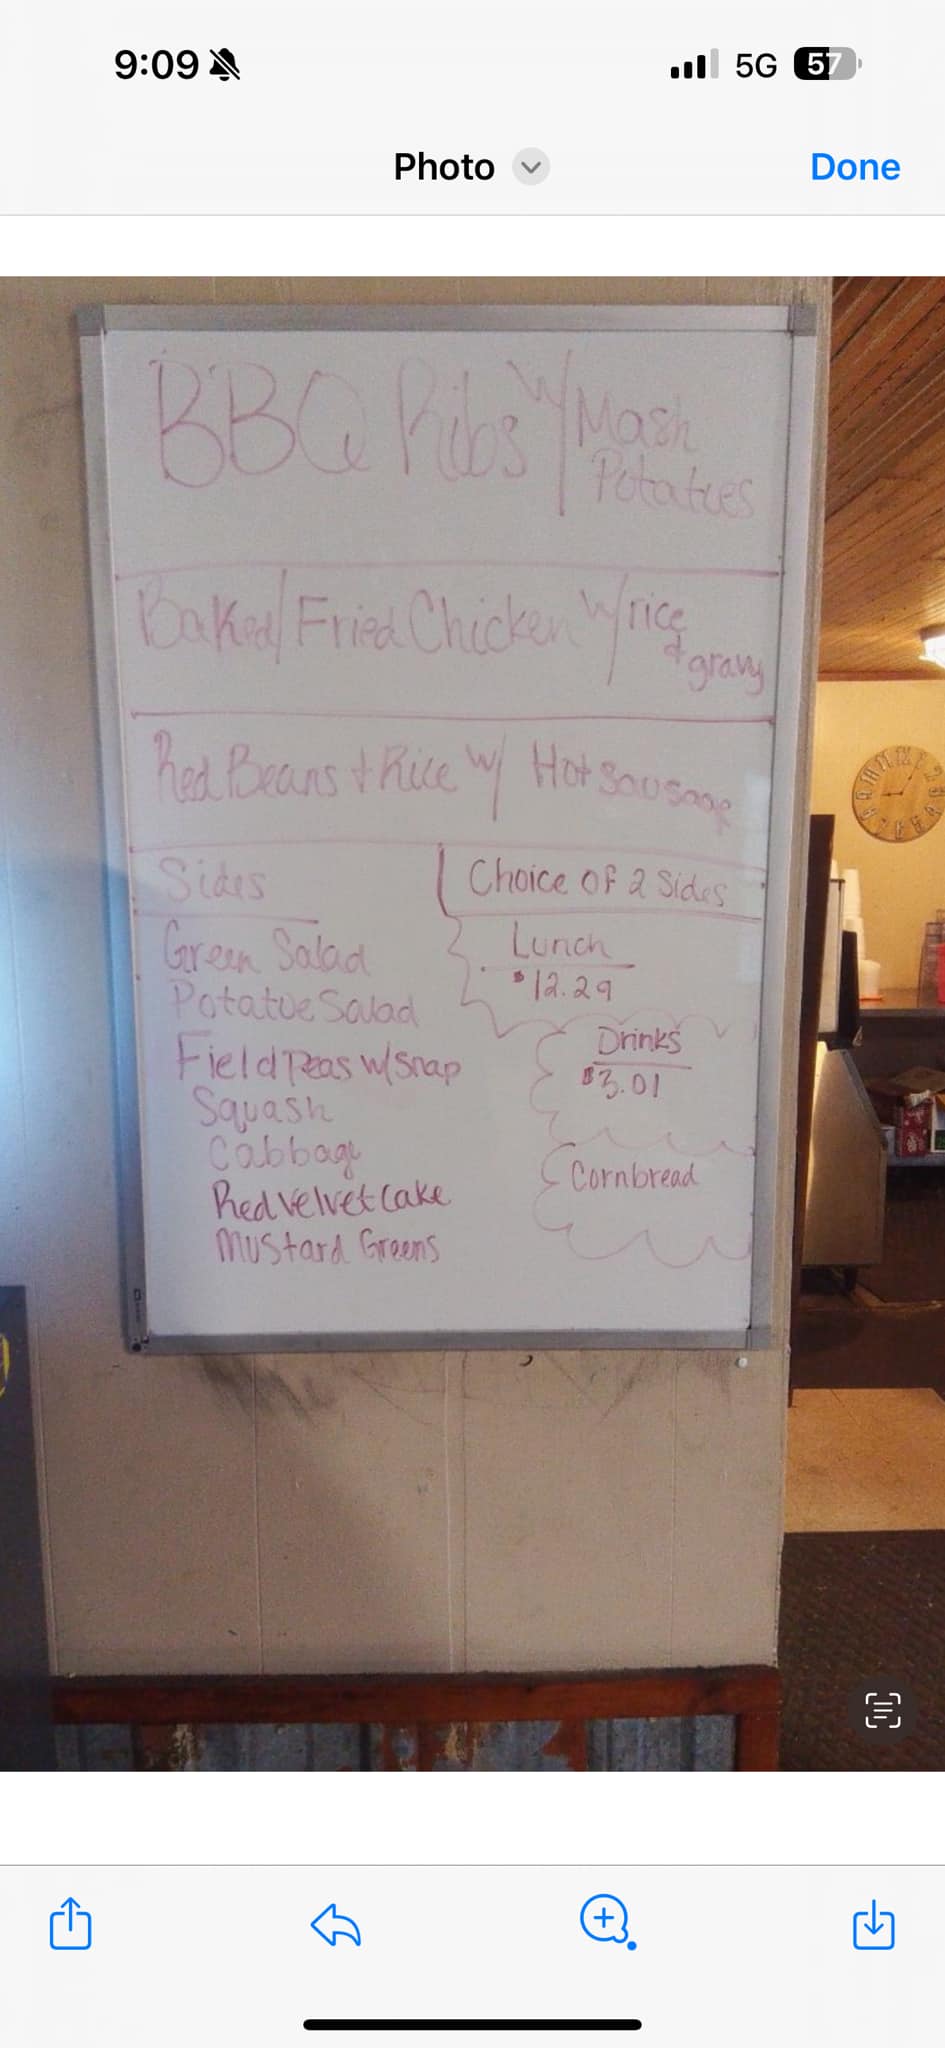 9:09
5G
57
Photo
Done
BBQ Ribs w/ Mash
Potatoes
Baked/Fried Chicken w/rice
& gravy
Red Beans + Rice w/ Hot Sausage
Sides
Choice Of 2 Sides
Green Salad
Potatoe Salad
Field Peas w/snap
Squash
Cabbage
Red Velvet Cake
Mustard Greens
Lunch
$12.29
Drinks
$3.01
Cornbread